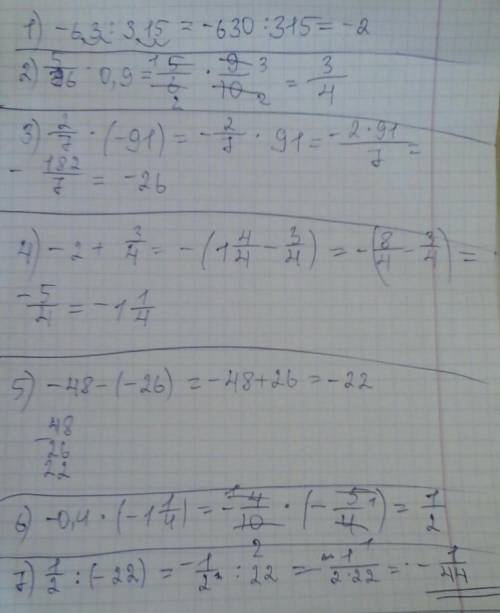 1) -63 : 315 = -630 : 315 = -2
2) 5/6 · 0,9 = 5/6 · 9/10 = 3/4
3) 2/7 · (-91) = -2/7 · 91 = -2·91/7 =
- 182/7 = -26
4) -2 + 3/4 = -(1 4/4 - 3/4) = -(8/4 - 3/4) =
-5/4 = -1 1/4
5) -48 - (-26) = -48 + 26 = -22
48
- 26
22
6) -0,4 · (-1 1/4) = -4/10 · (-5/4) = 1/2
7) 1/2 : (-22) = -1/2 : 22 = -1/2·22 = -1/44